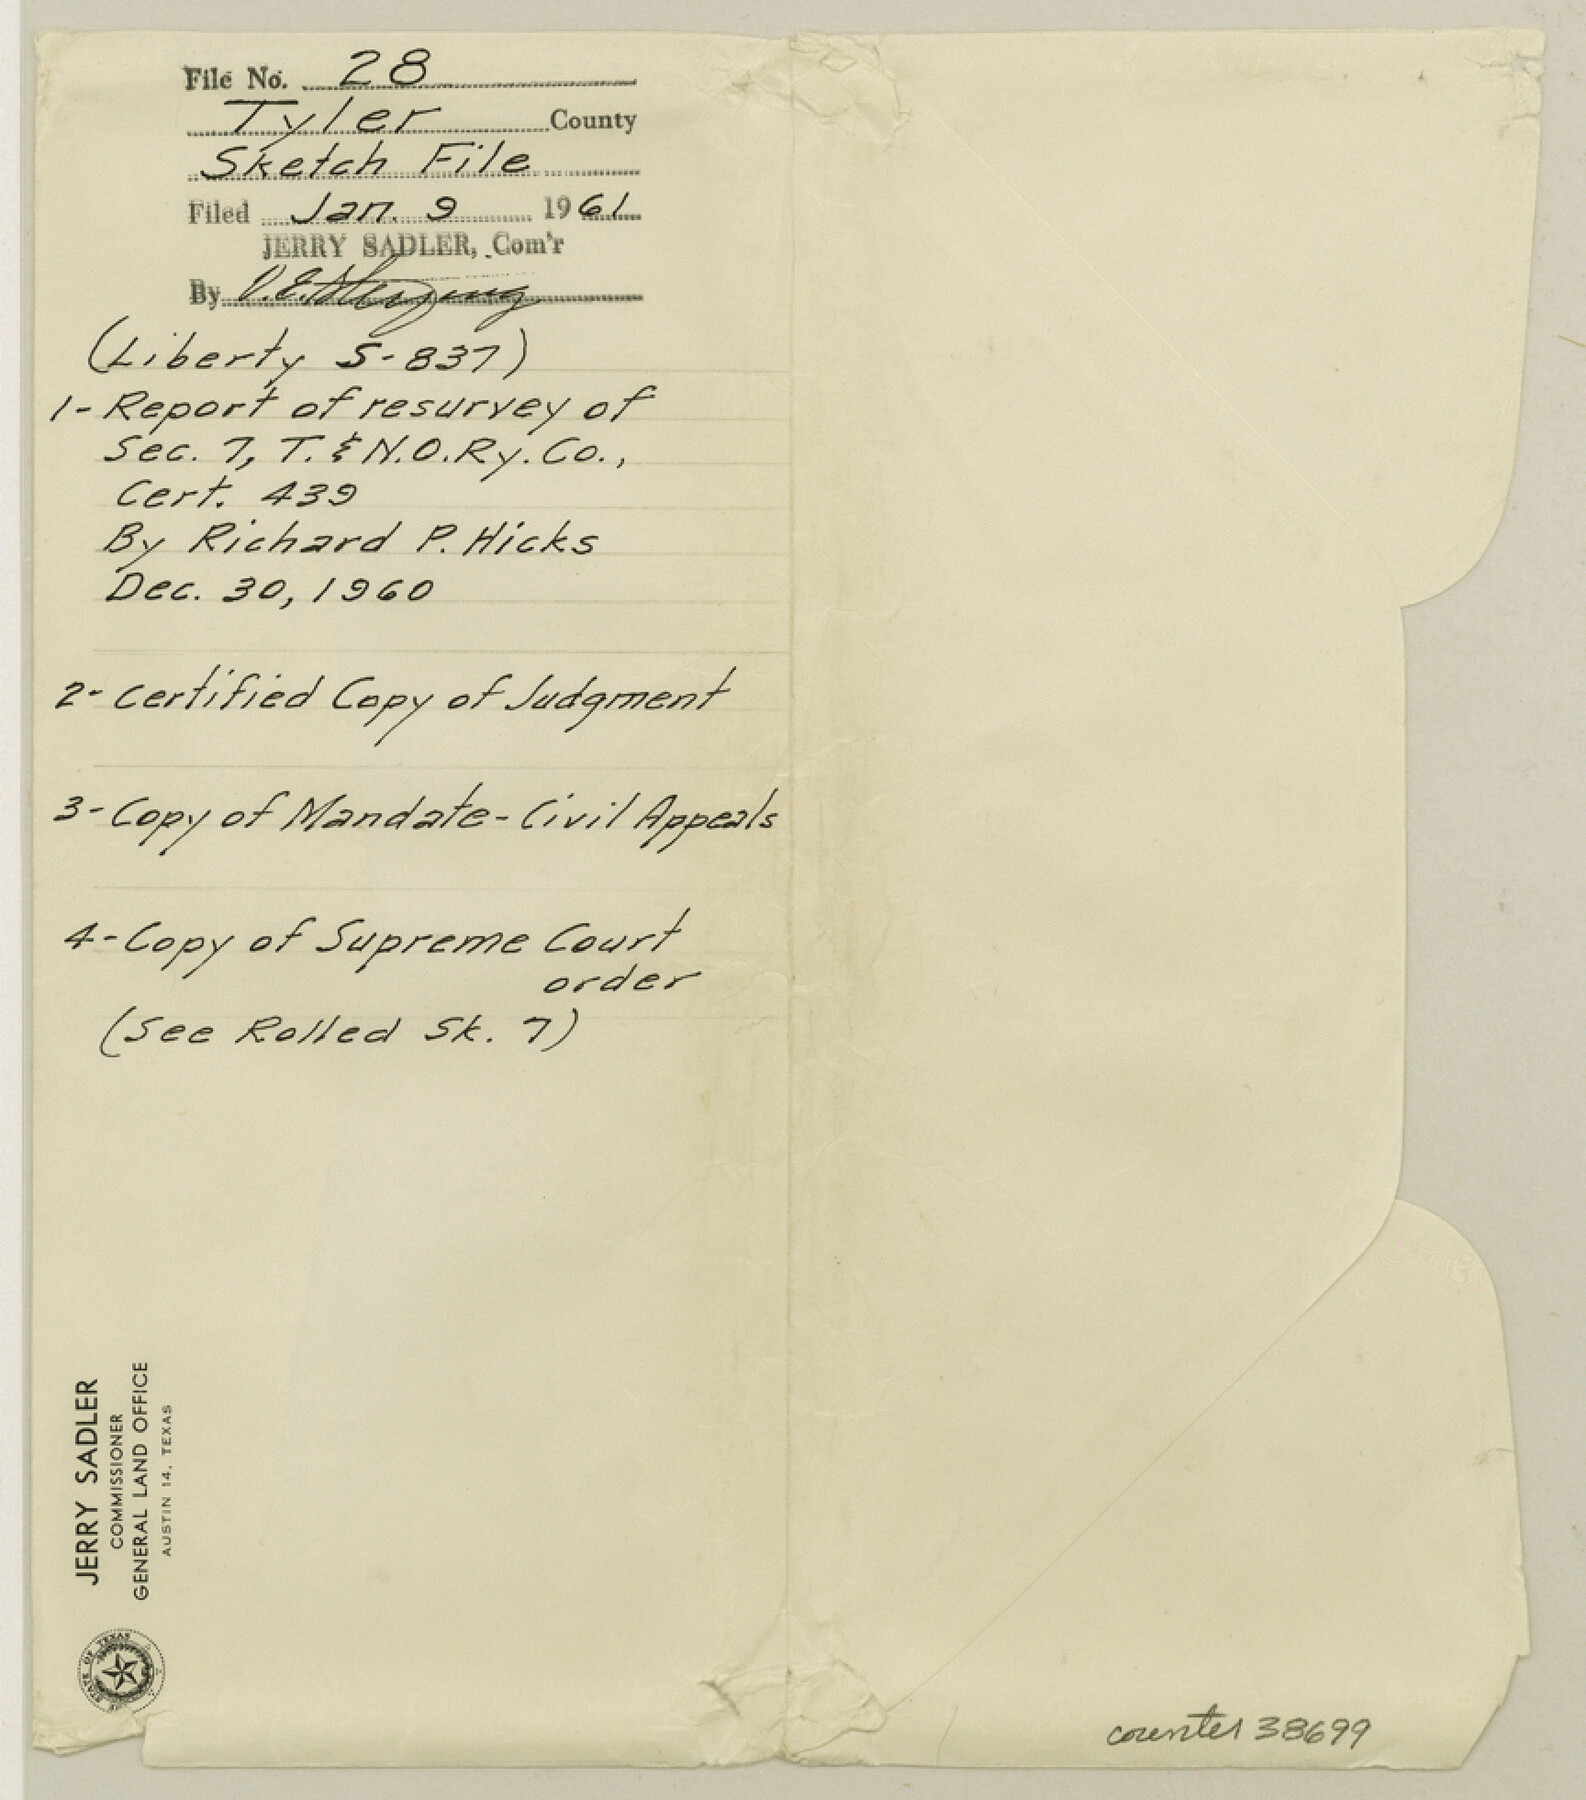 File No. 28
Tyler County
Sketch File
Filed Jan. 9 1961
JERRY SADLER, Com'r
By
(Liberty S-837)
1- Report of resurvey of
Sec. 7, T. & N.O.Ry.Co.,
Cert. 439
By Richard P. Hicks
Dec. 30, 1960
2- Certified Copy of Judgment
3- Copy of Mandate - Civil Appeals
4- Copy of Supreme Court
order
(See Rolled Sk. 7)
JERRY SADLER
COMMISSIONER
GENERAL LAND OFFICE
AUSTIN 14, TEXAS
STATE OF TEXAS
counter 38699